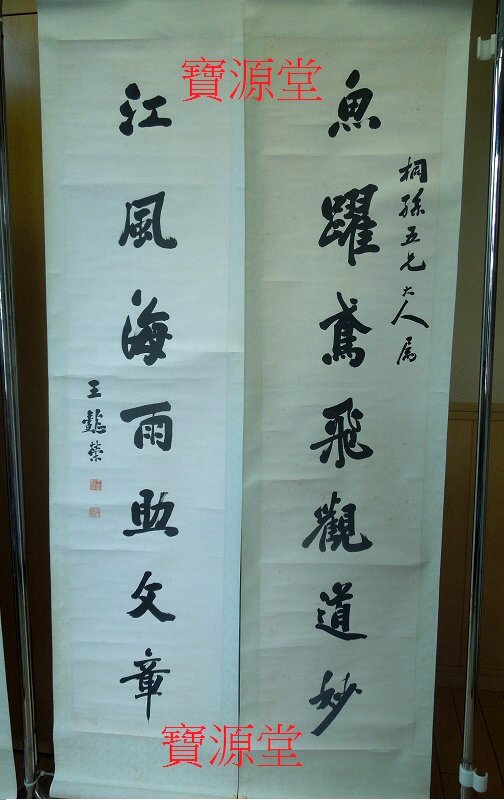 寶源堂
桐孫五兄大人属
魚躍鳶飛觀道妙
江風海雨助文章
王懿榮
寶源堂